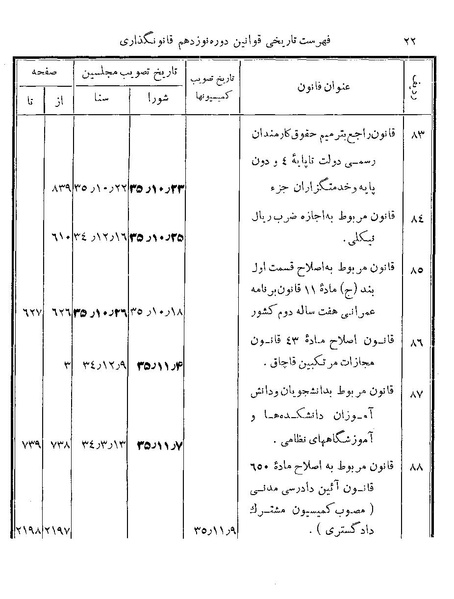 ۲۲ فهرست تاریخی قوانین دوره نوزدهم قانونگذاری
ردیف عنوان قانون تاریخ تصویب کمیسیونها تاریخ تصویب مجلسین صفحه
شورا سنا از تا
۸۳ قانون راجع بترمیم حقوق کارمندان
رسمی دولت تا پایهٔ ٤ و دون
پایه و خدمتگزاران جزء ۳۵٫۱۰٫۲۳ ۳۵٫۱۰٫۲۲ ۸۳۹
۸٤ قانون مربوط به اجازه ضرب ریال
نیکلی . ۳۵٫۱۰٫۲۵ ۳٤٫۱۲٫۱۶ ۶۱۰
۸۵ قانون مربوط به اصلاح قسمت اول
بند (ج) مادهٔ ۱۱ قانون برنامه
عمرانی هفت ساله دوم کشور ۳۵٫۱۰٫۱۸ ۳۵٫۱۰٫۲۶ ۶۲۶ ۶۲۷
۸۶ قانون اصلاح مادهٔ ٤۳ قانون
مجازات مرتکبین قاچاق . ۳۵٫۱۱٫۴ ۳٤٫۱۲٫۹ ۳
۸۷ قانون مربوط بدانشجویان ودانش
آموزان دانشکده‌ها و
آموزشگاههای نظامی . ۳۵٫۱۱٫۷ ۳٤٫۳٫۱۳ ۷۳۸ ۷۳۹
۸۸ قانون مربوط به اصلاح مادهٔ ۶۵۰
قانون آئین دادرسی مدنی
( مصوب کمیسیون مشترك
دادگستری ) . ۳۵٫۱۱٫۹ ۲۱۹۷ ۲۱۹۸